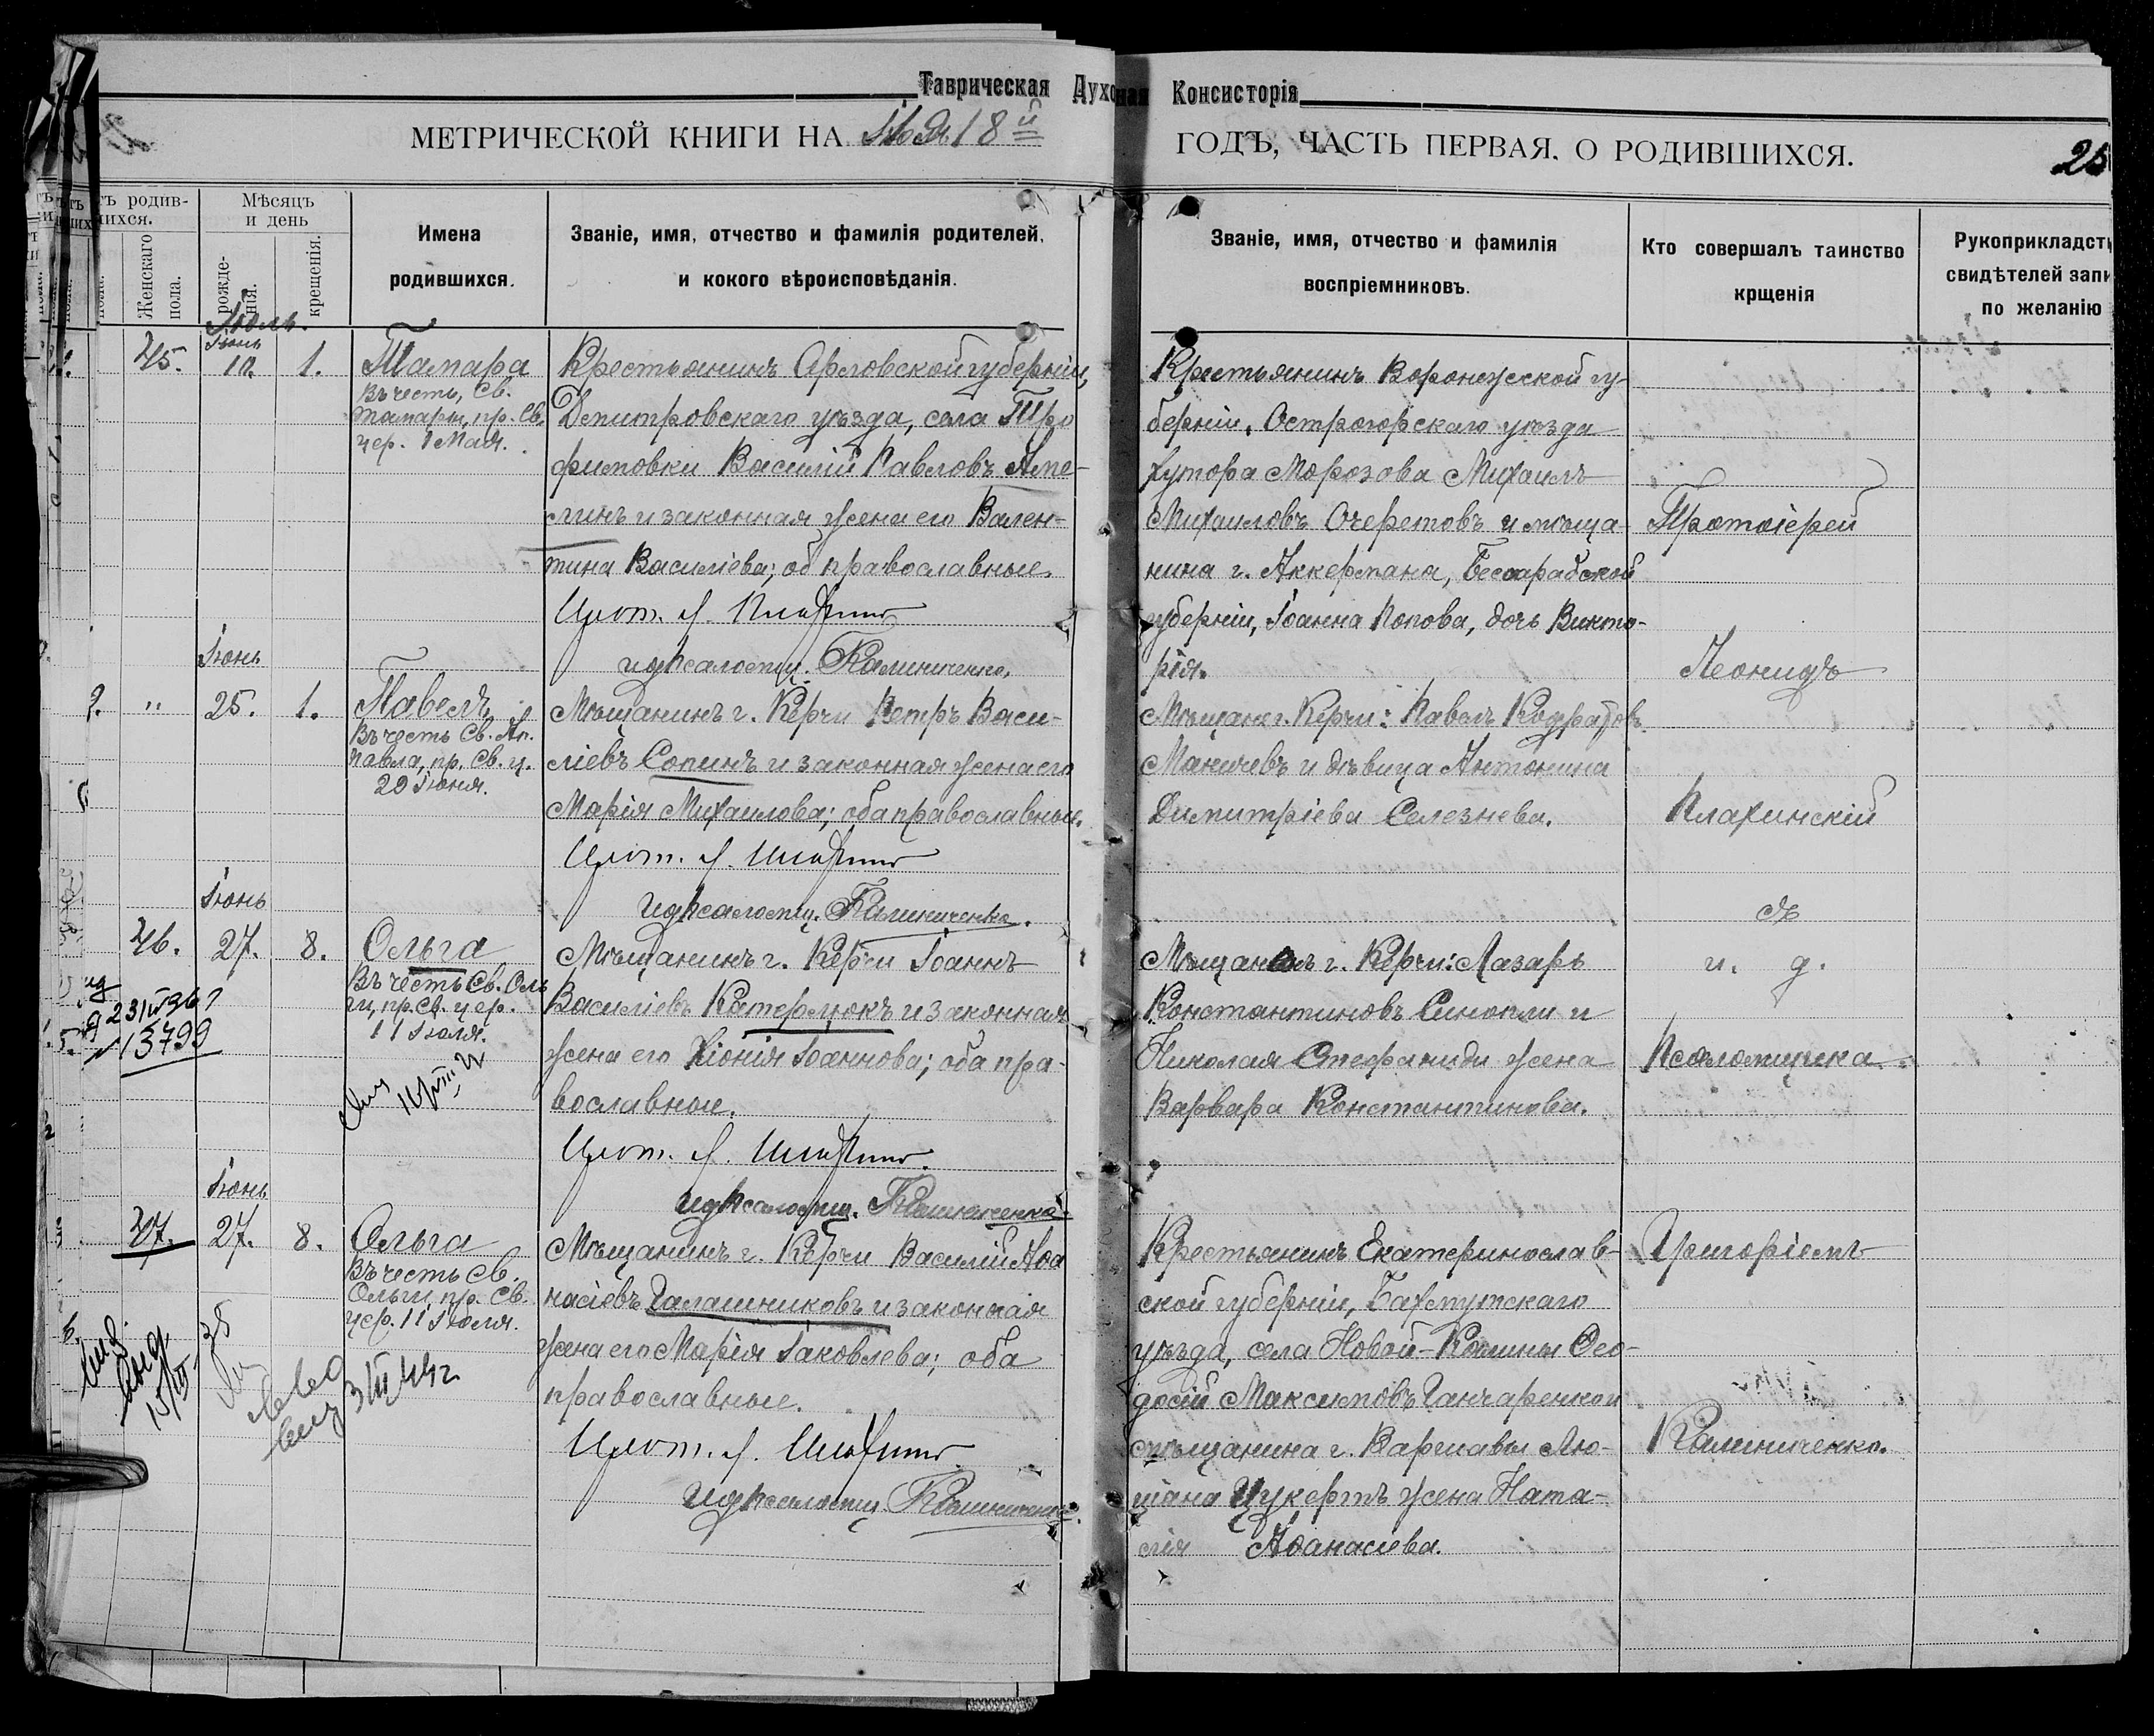 Таврическая Духовная Консисторія
МЕТРИЧЕСКОЙ КНИГИ НА 18й ГОДЪ, ЧАСТЬ ПЕРВАЯ. О РОДИВШИХСЯ.
родив-
шихся.
Женскаго
пола.
Мѣсяцъ
и день
рожде-
нія.
крещенія.
Имена
родившихся.
Званіе, имя, отчество и фамилія родителей,
и кокого вѣроисповѣданія.
Званіе, имя, отчество и фамилія
воспріемниковъ.
Кто совершалъ таинство
крщенія
Рукоприкладст
свидѣтелей запи
по желанію
Іюль.
Іюнь
45. 12. 1.
Тамара
Въ честь Св.
Тамары, пр. Св.
цер. 1 Мая.
Крестьянинъ Орловской губерніи,
Дмитровскаго уѣзда, села Тро
фимовки Василій Павловъ Аме-
линъ и законная жена его Вален-
тина Василіева; об православные.
Прот. Л.
и д псаломщ. Калиниченко.
Крестьянинъ Воронежской гу-
берніи, Острогорскаго уѣзда
хутора Морозова Михаилъ
Михаиловъ Очеретовъ и мѣща-
нина г. Аккермана, Бессарабской
губерніи, Іоанна Попова, дочь Викто-
рія.
Іюнь
" 25. 1.
Павелъ
Въ честь Св. Ап.
Павла, пр. Св. ц.
29 Іюня.
Мѣщанинъ г. Керчи Петръ Васи-
ліевъ Сопинъ и законная жена его
Марія Михаилова; оба православные.
Прот. Л.
и д псаломщ. Калиниченко.
Мѣщане г. Керчи: Павелъ
и дѣвица Антонина
Димитріева Селезнева.
Іюнь
46. 27. 8.
Ольга
Въ честь Св. Оль
ги, пр. Св. цер.
11 Іюля.
13799
Мѣщанинъ г. Керчи Іоаннъ
Василіевъ Катерлюкъ и законная
жена его Хіонія Іоаннова; оба пра-
вославные.
Прот. Л.
и д псаломщ. Калиниченко.
Мѣщанинъ г. Керчи: Лазарь
Константиновъ Синопли и
Николая Стефаниди жена
Варвара Константинова.
Іюнь
47. 27. 8.
Ольга
Въ честь Св.
Ольги, пр. Св.
цер. 11 Іюля.
Мѣщанинъ г. Керчи Василій Аѳа
насіевъ Галашниковъ и законная
жена его Марія Іаковлева; оба
православные.
Прот. Л.
и д псаломщ. Калиниченко.
Крестьянинъ Екатеринослав-
ской губерніи, Бахмутскаго
уѣзда, села Новой- Ѳео-
досій Максимовъ Ганчаренко и
мѣщанина г. Варшавы Лю-
ціана Цукертъ жена Ната-
лія Аѳанасіева.
Протоіерей
Леонидъ
Плахинскій
съ
и. д.
Псаломщика
Григоріемъ
Калиниченко.